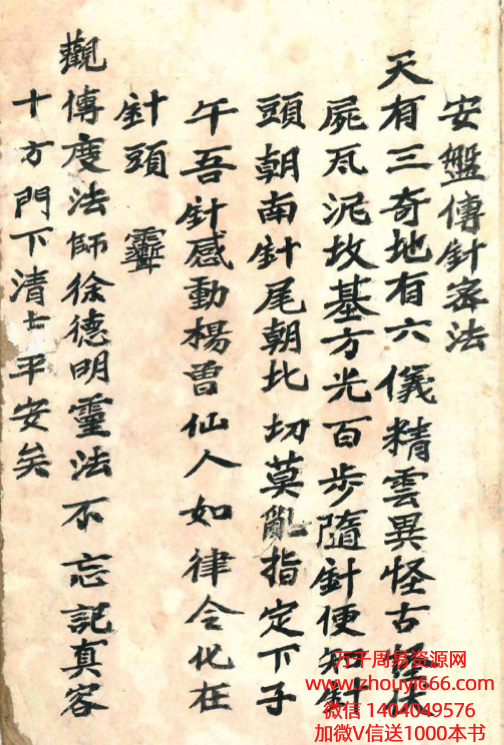 安盤傳針宻法
天有三奇地有六儀精雲異怪古
屍瓦泥坟基方光百步隨針便知針
頭朝南針尾朝北切莫亂指定下子
午吾針感動楊曾仙人如律令化在
針頭
觀傳度法師徐德明靈法不忘記真容
十方門下清平安矣
万千周易资源网
www.zhouyi666.com
微信 1404049576
加微V信送1000本书